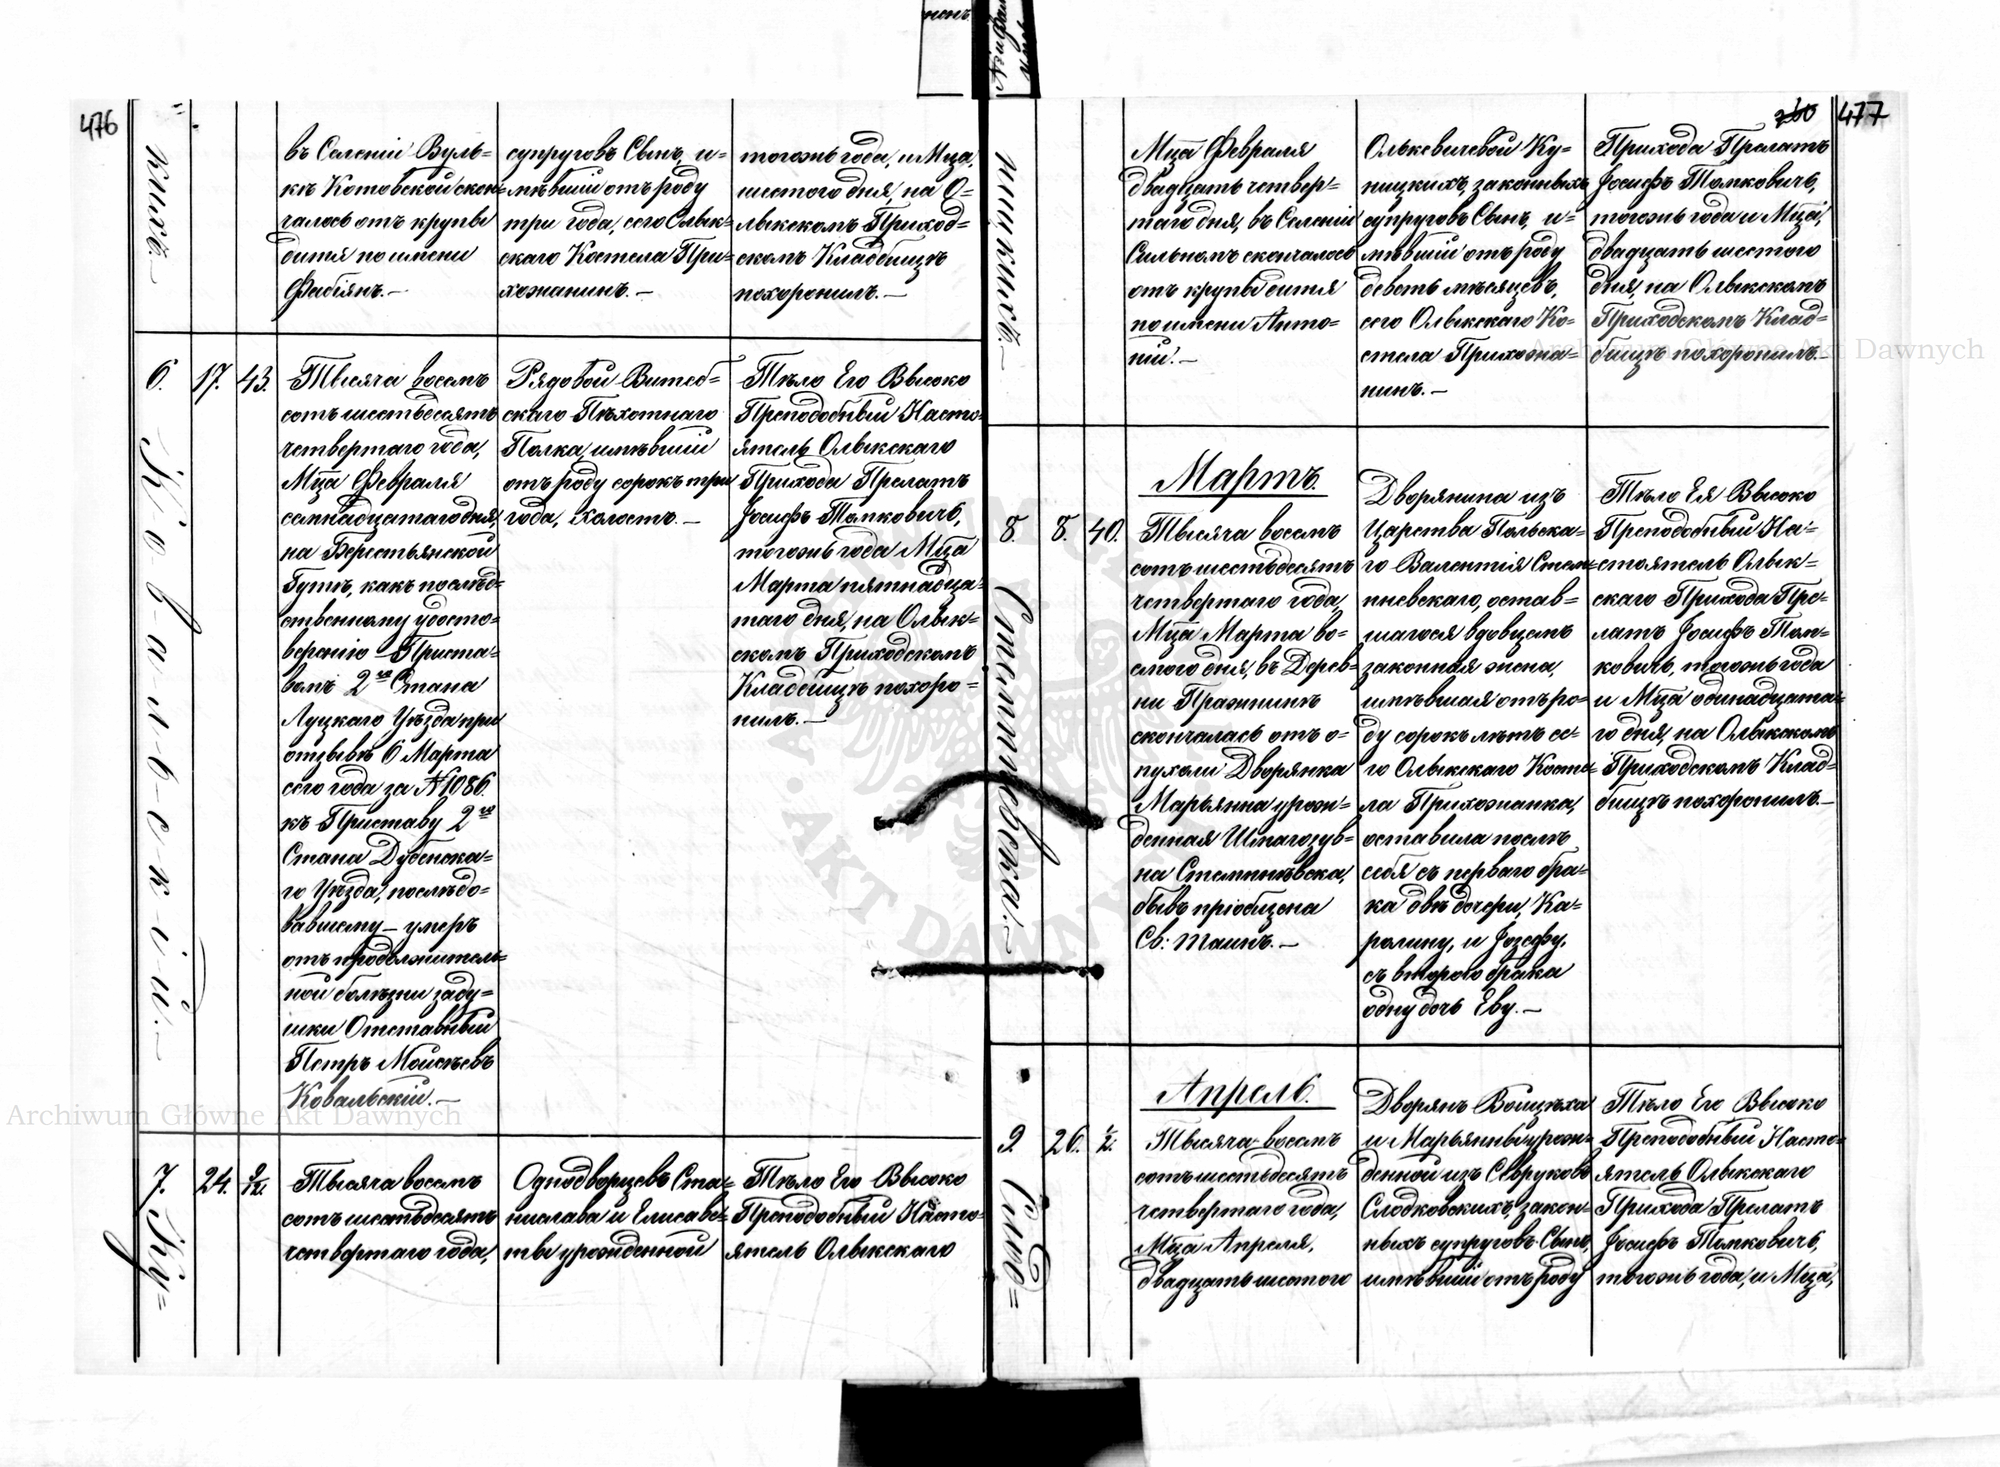 476
въ Селеніи Вуль=
кѣ Котовской скон=
чалось отъ крупы
дитя по имени
Фабіянъ.—
супруговъ Сынъ, и=
мѣвшій отъ роду
три года, сего Олык=
скаго Костела При=
хожанинъ.—
тогожъ года, и Мца,
шестого дня, на О=
лыкскомъ Приход=
скомъ Кладбищѣ
похоронилъ.—
6.
17.
43.
Ковальскій.—
Тысяча восемь
сотъ шестьдесятъ
четвертаго года,
Мца Февраля
семнадцатаго дня,
на Берестьянской
Гутѣ, какъ послѣд=
ственному удосто=
веренію Приста=
вомъ 2го Стана
Луцкаго Уѣзда при
отзывѣ 6 Марта
сего года за № 1086.
къ Приставу 2го
Стана Дубенска=
го Уѣзда, послѣдо=
вавшему — умеръ
отъ продолжитель=
ной болѣзни заду=
шки Отставный
Петръ Моисѣевъ
Ковальскій.—
Рядовой Витеб=
скаго Пѣхотнаго
Полка, имѣвшій
отъ роду сорокъ три
года, холостъ.—
Тѣло Его Высоко
Преподобный Насто=
ятель Олыкскаго
Прихода Прелатъ
Іосифъ Томковичъ,
тогожъ года Мца
Марта пятнадца=
таго дня, на Олык=
скомъ Приходскомъ
Кладбищѣ похоро=
нилъ.—
7.
24.
9/12.
Ку=
Тысяча восемь
сотъ шестьдесятъ
четвертаго года,
Однодворцевъ Ста=
нислава и Елисаве=
ты урожденной
Тѣло Его Высоко
Преподобный Насто=
ятель Олыкскаго
477
Мца Февраля
двадцать четвер=
таго дня, въ Селеніи
Сильномъ скончалось
отъ крупы дитя
по имени Анто=
ній.—
Олькевичевой Ку=
ницкихъ, законныхъ
супруговъ Сынъ, и=
мѣвшій отъ роду
девять мѣсяцевъ,
сего Олыкскаго Ко=
стела Прихожа=
нинъ.—
Прихода Прелатъ
Іосифъ Томковичъ,
тогожъ года и Мца,
двадцать шестого
дня, на Олыкскомъ
Приходскомъ Клад=
бищѣ похоронилъ.—
Мартъ.
8.
8.
40.
Тысяча восемь
сотъ шестьдесятъ
четвертаго года,
Мца Марта во=
смого дня, въ Дерев=
ни
скончалась отъ о=
пухоли Дворянка
Марьянна урож=
денная
бывъ пріобщена
Св: таинъ.—
Дворянина изъ
Царства Польска=
го Валентія Стем=
пневскаго, остав=
шагося вдовцемъ
законная жена,
имѣвшая отъ ро=
ду сорокъ лѣтъ се=
го Олыкскаго Косте=
ла Прихожанка,
оставила послѣ
себя съ перваго бра=
ка двѣ дочери, Ка=
ролину, и Іозефу,
съ второго брака
одну дочь Еву.—
Тѣло Ея Высоко
Преподобный На=
стоятель Олык=
скаго Прихода Пре=
латъ Іосифъ Том=
ковичъ, тогожъ года
и Мца одинадцата=
го дня, на Олыкскомъ
Приходскомъ Клад=
бищѣ похоронилъ.—
Апрель.
9.
26.
1/2.
Сло=
Тысяча восемь
сотъ шестьдесятъ
четвертаго года,
Мца Апреля,
двадцать шестого
Дворянъ Войцѣха
и Марьянны урож=
денной изъ
Слодковскихъ, закон=
ныхъ супруговъ Сынъ,
имѣвшій отъ роду
Тѣло Его Высоко
Преподобный Насто=
ятель Олыкскаго
Прихода Прелатъ
Іосифъ Томковичъ,
тогожъ года, и Мца,
Archiwum Główne Akt Dawnych
Archiwum Główne Akt Dawnych